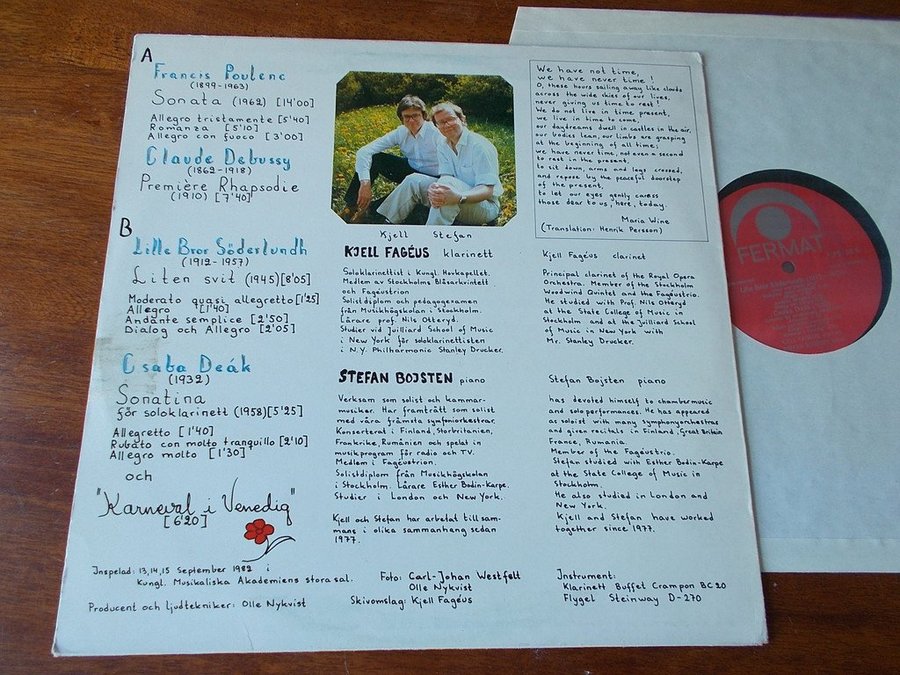 A
Francis Poulenc
(1899-1963)
Sonata (1962) [14'00]
Allegro tristamente [5'40]
Romanza [5'10]
Allegro con fuoco [3'00]
Claude Debussy
(1862-1918)
Première Rhapsodie
(1910) [7'40]
B
Lille Bror Söderlundh
(1912-1957)
Liten svit (1945) [8'05]
Moderato quasi allegretto [1'25]
Allegro [1'40]
Andante semplice [2'50]
Dialog och Allegro [2'05]
Csaba Deák
(1932)
Sonatina
för soloklarinett (1958) [5'25]
Allegretto [1'40]
Rubato con molto tranquillo [2'10]
Allegro molto [1'30]
och
"Karneval i Venedig"
[6'20]
Inspelad: 13,14,15 September 1982 i
Kungl. Musikaliska Akademiens stora sal.
Producent och ljudtekniker: Olle Nykvist
Kjell Stefan
KJELL FAGÉUS klarinett
Soloklarinettist i Kungl. Hovkapellet.
Medlem av Stockholms Blåsarkvintett
och Fagéustrion
Solistdiplom och pedagogexamen
från Musikhögskolan i Stockholm.
Lärare prof. Nils Otteryd.
Studier vid Juilliard School of Music
i New York för soloklarinettisten
i N.Y. Philharmonic Stanley Drucker.
STEFAN BOJSTEN piano
Verksam som solist och kammar-
musiker. Har framträtt som solist
med våra främsta symfoniorkestrar.
Konserterat i Finland, Storbritanien,
Frankrike, Rumänien och spelat in
musikprogram för radio och TV.
Medlem i Fagéustrion.
Solistdiplom från Musikhögskolan
i Stockholm. Lärare Esther Bodin-Karpe.
Studier i London och New York.
Kjell och Stefan har arbetat tillsam-
mans i olika sammanhang sedan
1977.
Foto: Carl-Johan Westfelt
Olle Nykvist
Skivomslag: Kjell Fagéus
We have not time,
we have never time!
O, these hours sailing away like clouds
across the wide skies of our lives,
never giving us time to rest!
We do not live in time present,
we live in time to come,
our daydreams dwell in castles in the air,
our bodies lean, our limbs are grasping
at the beginning of all time;
we have never time, not even a second
to rest in the present,
to sit down, arms and legs crossed,
and repose by the peaceful doorstep
of the present,
to let our eyes gently caress
those dear to us, here, today.
Maria Wine
(Translation: Henrik Persson)
Kjell Fagéus clarinet
Principal clarinet of the Royal Opera
Orchestra. Member of the Stockholm
Woodwind Quintet and the Fagéustrio.
He studied with Prof. Nils Otteryd
at the State College of Music in
Stockholm and at the Juilliard School
of Music in New York with
Mr. Stanley Drucker.
Stefan Bojsten piano
has devoted himself to chambermusic
and solo performances. He has appeared
as soloist with many symphonyorchestras
and given recitals in Finland, Great Britain
France, Rumania.
Member of the Fagéustrio.
Stefan studied with Esther Bodin-Karpe
at the State College of Music in
Stockholm.
He also studied in London and
New York.
Kjell and Stefan have worked
together since 1977.
Instrument:
Klarinett Buffet Crampon BC 20
Flygel Steinway D-270
FERMAT